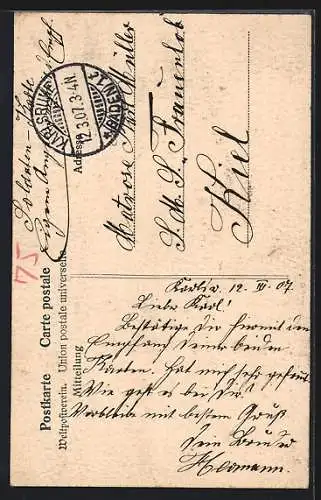 Soldaten-Karte
Eigene Angelegenheit des Empf.
Postkarte Carte postale
Weltpostverein. Union postale universelle
KARLSRUHE
12.3.07.3-4N.
(BADEN)
Adresse
Mitteilung
75
Matrose Karl Müller
S.M.S. „Frauenlob
Kiel
Karlsr. 12. III. 07
Lieber Karl!
Bestätige Dir hiermit den
Empfang Deiner beiden
Karten. Hat mich sehr gefreut
Wie geht es bei Dir?
Verbleibe mit bestem Gruß
Dein Bruder
Hermann.